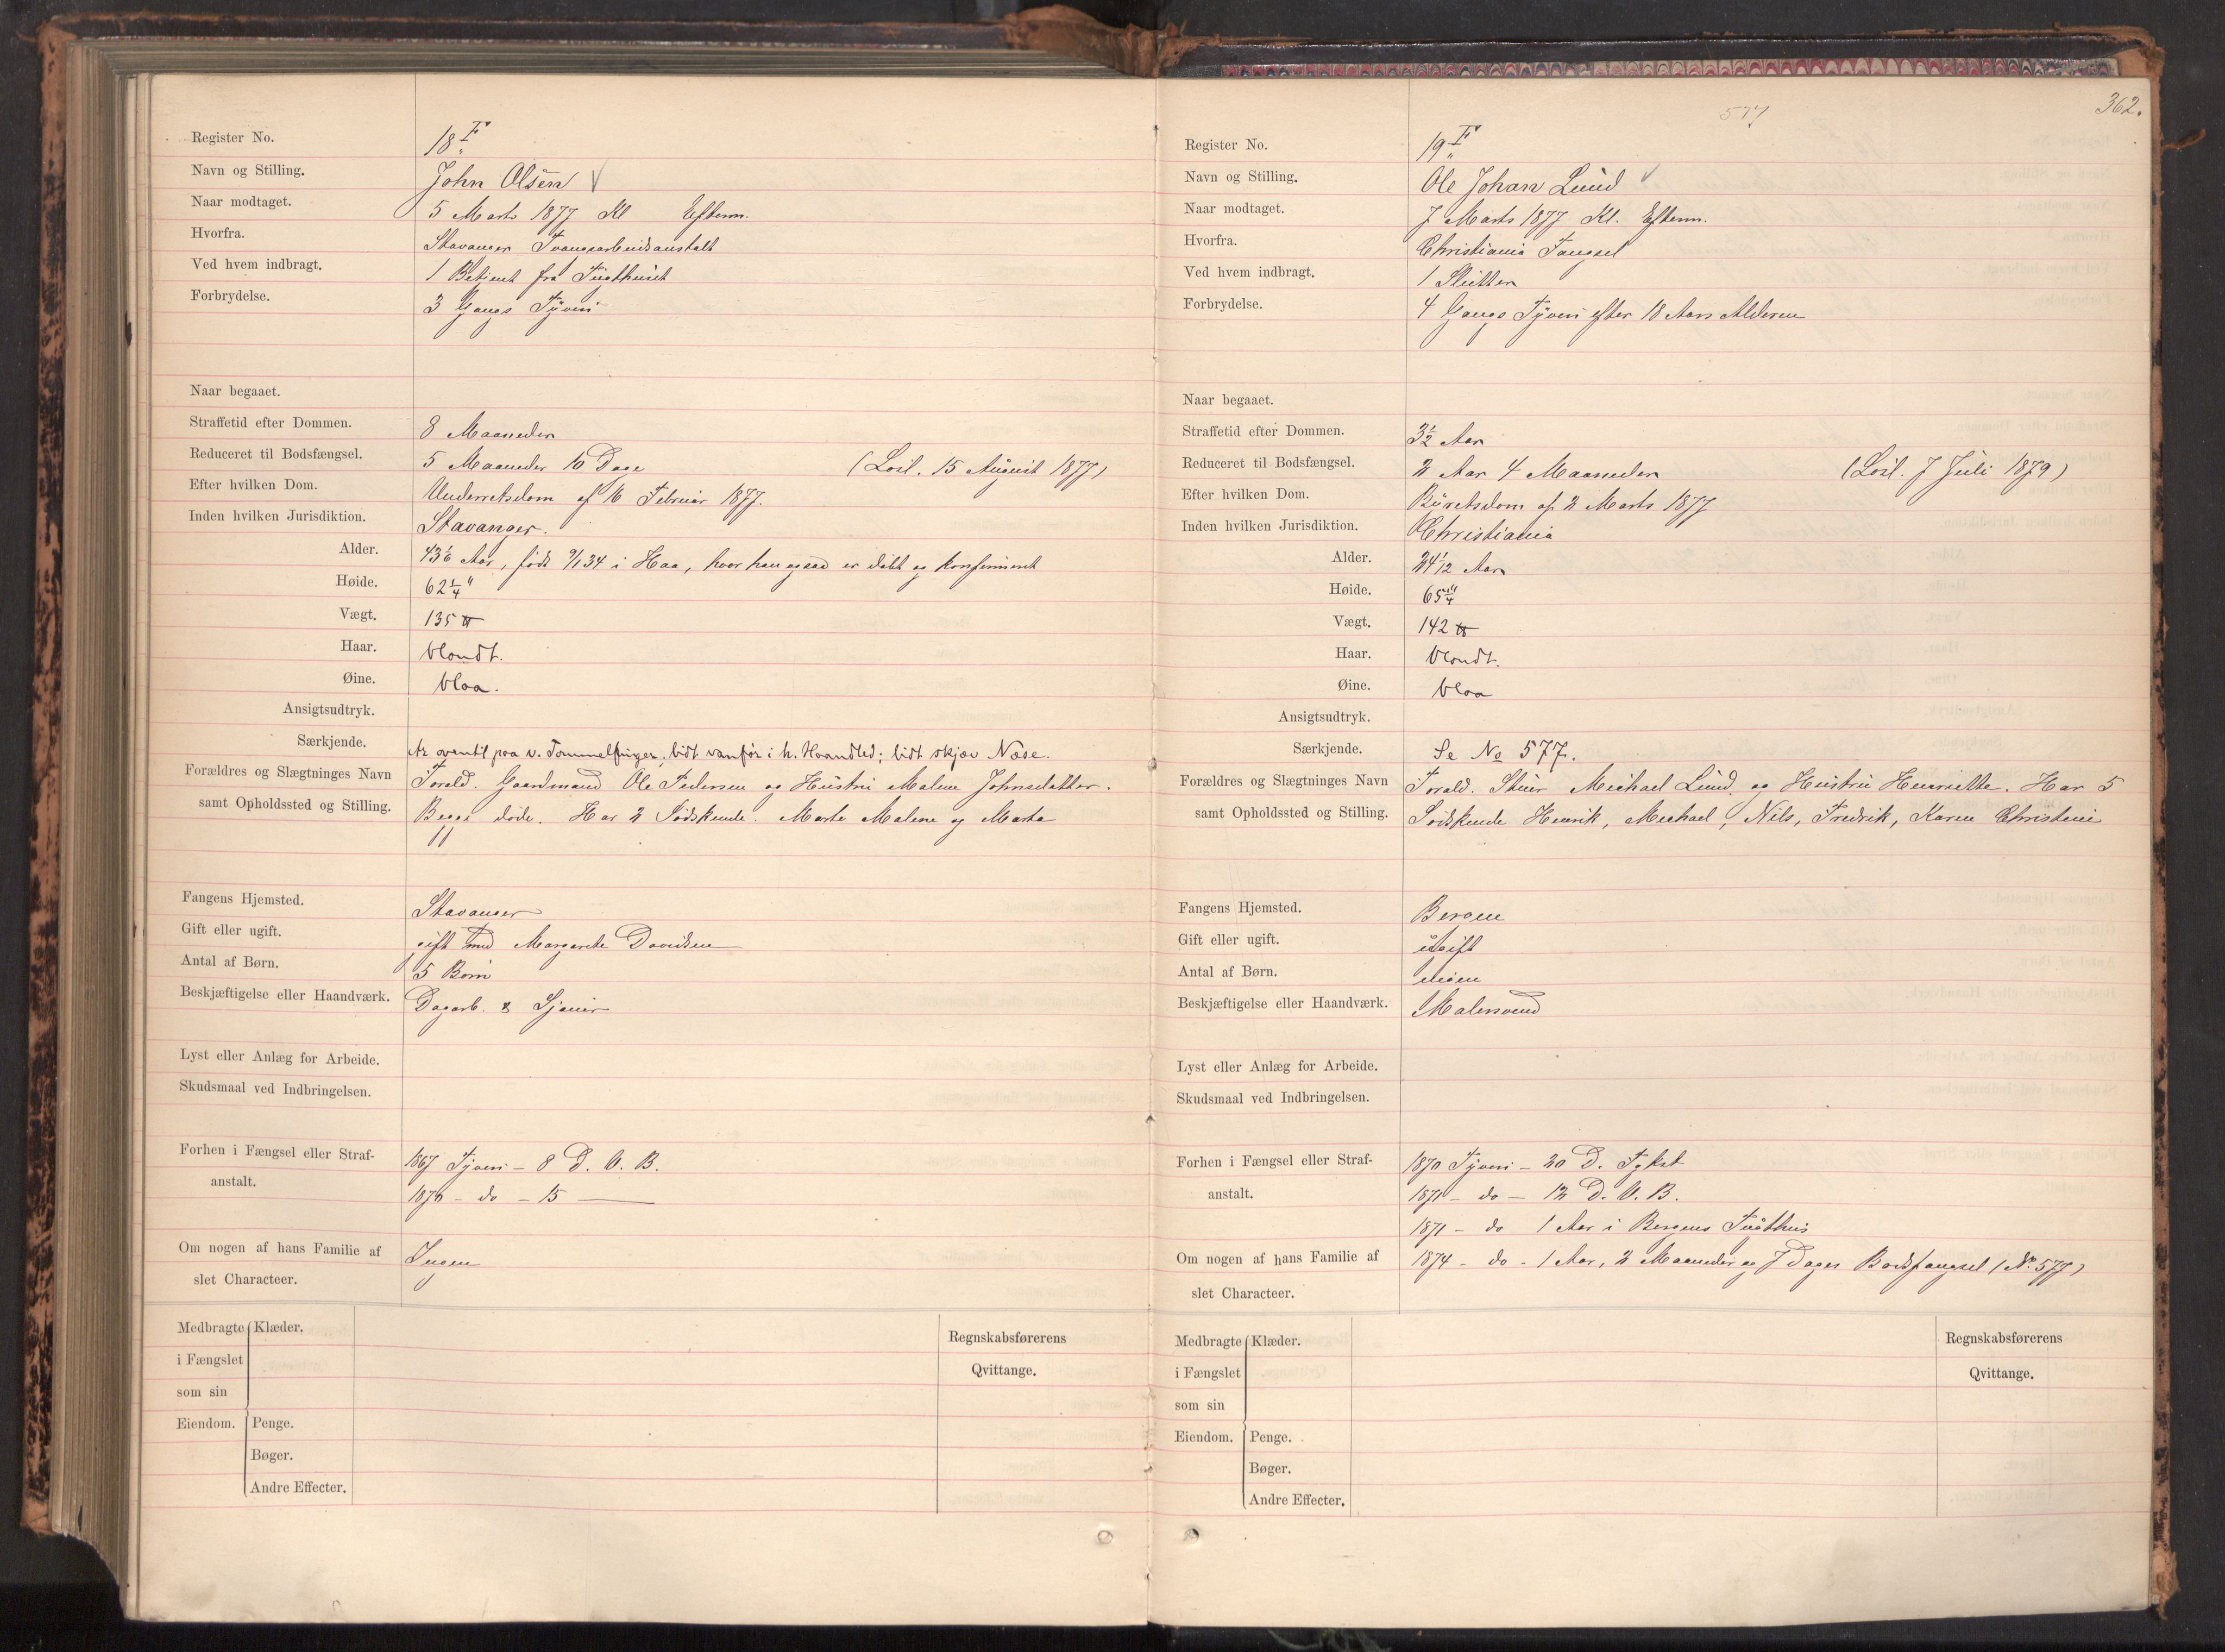 Register No. 18 F
Navn og Stilling. John Olsen
Naar modtaget. 5 Marts 1877 Kl Efterm.
Hvorfra. Stavanger Tvangsarbeidsanstalt
Ved hvem indbragt. 1 Betjent fra Tugthuset
Forbrydelse. 3 Gangs Tyveri
Naar begaaet.
Straffetid efter Dommen. 8 Maaneder
Reduceret til Bodsfængsel. 5 Maaneder 10 Dage (Løsl. 15 August 1877)
Efter hvilken Dom. Underretsdom af 16 Februar 1877.
Inden hvilken Jurisdiktion. Stavanger.
Alder. 43 1/6 Aar, født 9/1 34 i Haa, hvor han ogsaa er døbt og konfirmeret
Høide. 62 1/4 "
Vægt. 135 ℔
Haar. blondt.
Øine. blaa.
Ansigtsudtryk.
Særkjende. Ar oventil paa v. Tommelfinger, lidt vanfør i h. Haandled; lidt skjæv Næse.
Forældres og Slægtninges Navn Foræld. Gaardmand Ole Pedersen og Hustru Malene Johnsdatter.
samt Opholdssted og Stilling. Begge døde. Har 2 Sødskende. Marte Malene og Marta
Fangens Hjemsted. Stavanger
Gift eller ugift. gift med Margarete Davidsen
Antal af Børn. 5 Børn
Beskjæftigelse eller Haandværk. Dagarb. & Sjauer
Lyst eller Anlæg for Arbeide.
Skudsmaal ved Indbringelsen.
Forhen i Fængsel eller Straf- 1867 Tyveri - 8 D. V. B.
anstalt. 1876 - do - 15 —
Om nogen af hans Familie af Ingen
slet Characteer.
Medbragte Klæder. Regnskabsførerens
i Fængslet Qvittange.
som sin
Eiendom. Penge.
Bøger.
Andre Effecter.
577 362.
Register No. 19 F
Navn og Stilling. Ole Johan Lund
Naar modtaget. 7 Marts 1877 Kl. Efterm.
Hvorfra. Christiania Fængsel
Ved hvem indbragt. 1 Slutter
Forbrydelse. 4 Gangs Tyveri efter 18 Aars Alderen
Naar begaaet.
Straffetid efter Dommen. 3 1/2 Aar
Reduceret til Bodsfængsel. 2 Aar 4 Maaneder (Løsl. 7 Juli 1879)
Efter hvilken Dom. Byretsdom af 2 Marts 1877
Inden hvilken Jurisdiktion. Christiania
Alder. 24 1/2 Aar
Høide. 65 1/4 "
Vægt. 142 ℔
Haar. blondt.
Øine. blaa
Ansigtsudtryk.
Særkjende. Se No 577.
Forældres og Slægtninges Navn Foræld. Stuer Michael Lund og Hustru Henriette. Har 5
samt Opholdssted og Stilling. Sødskende Henrik, Michael, Nils, Fredrik, Karen Christine
Fangens Hjemsted. Bergen
Gift eller ugift. ugift
Antal af Børn.
Beskjæftigelse eller Haandværk. Malersvend
Lyst eller Anlæg for Arbeide.
Skudsmaal ved Indbringelsen.
Forhen i Fængsel eller Straf- 1870 Tyveri - 20 D.
anstalt. 1871 - do - 12 D. V. B.
1871 - do 1 Aar i Bergens Tugthus
Om nogen af hans Familie af 1874 - do - 1 Aar, 2 Maaneder og 7 Dages Bodsfængsel (No. 577)
slet Characteer.
Medbragte Klæder. Regnskabsførerens
i Fængslet Qvittange.
som sin
Eiendom. Penge.
Bøger.
Andre Effecter.